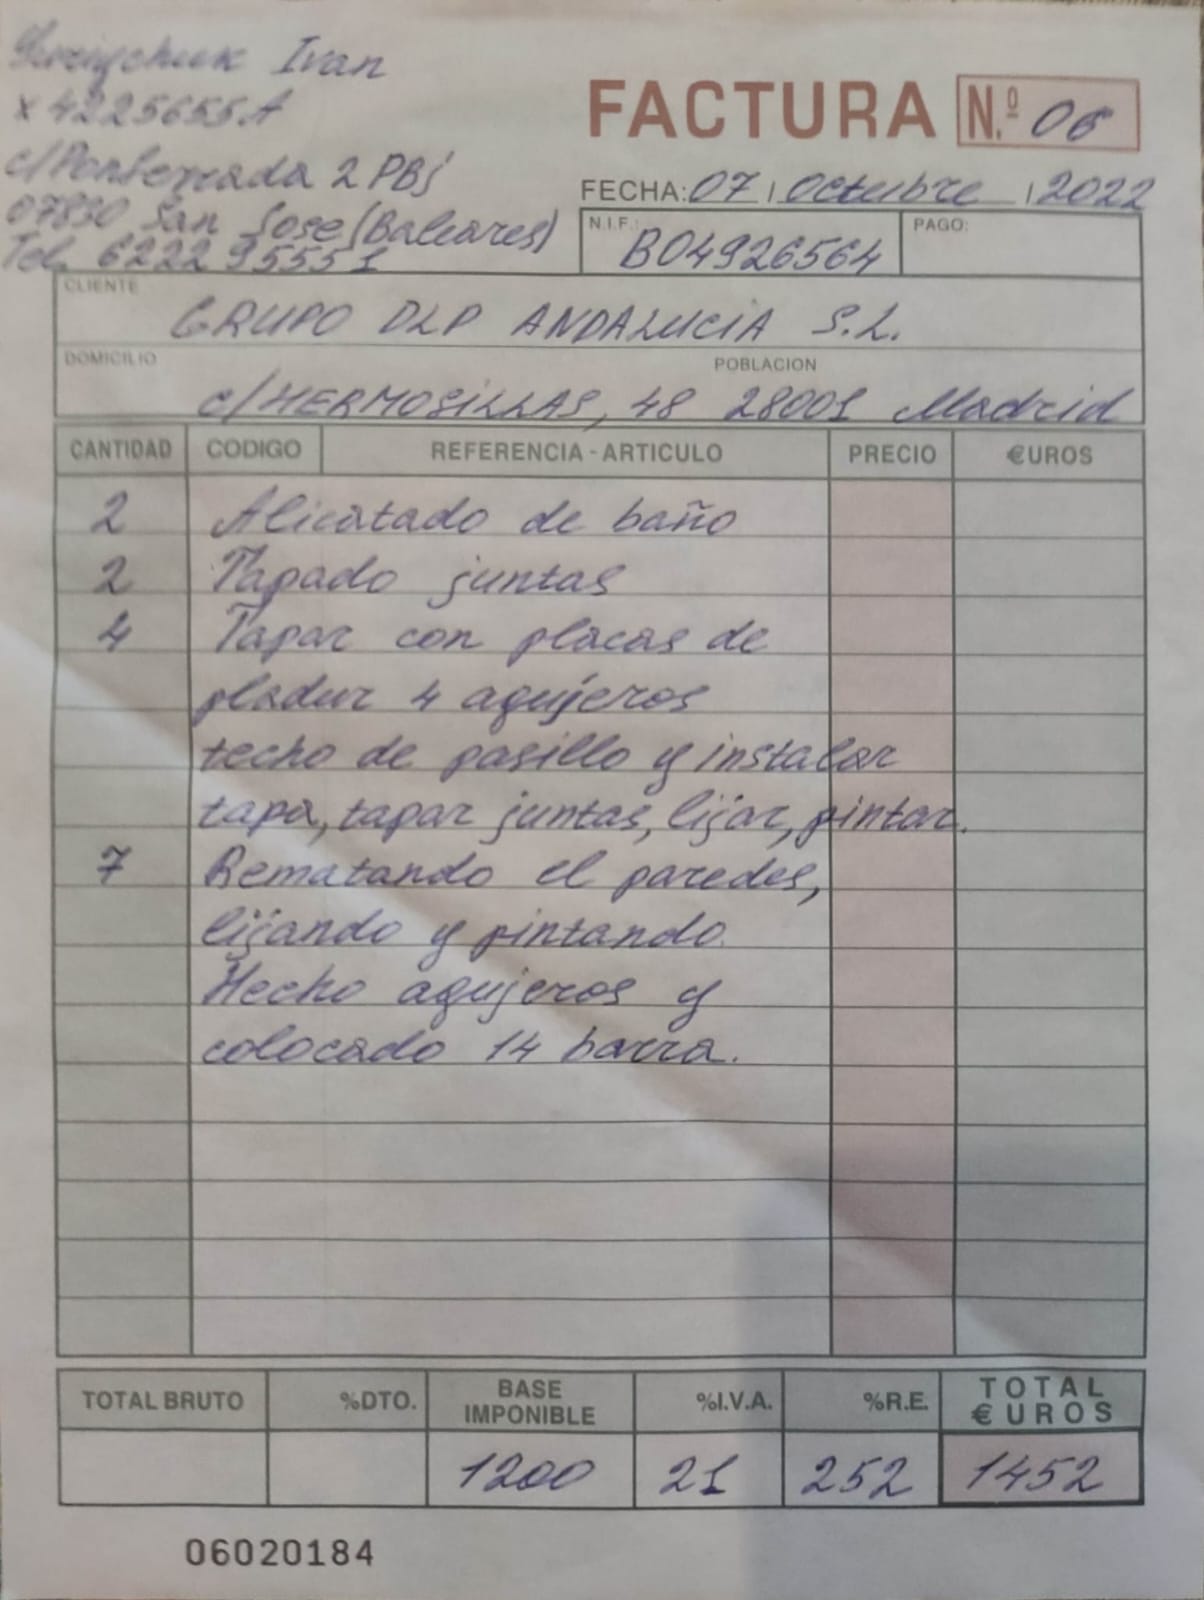 Ivan
X4225655A
c/Ponferrada 2 PBj
07830 San Jose (Baleares)
Tel. 622295551
FACTURA N.º 06
FECHA: 07 / Octubre / 2022
N.I.F.: B04926564 PAGO:
CLIENTE
GRUPO DLP ANDALUCIA S.L.
DOMICILIO POBLACION
c/HERMOSILLAS, 48 28001 Madrid
CANTIDAD CODIGO REFERENCIA - ARTICULO PRECIO €UROS
2 Alicatado de baño
2 Tapado juntas
4 Tapar con placas de
pladur 4 agujeros
techo de pasillo y instalar
tapa, tapar juntas, lijar, pintar.
7 Rematando el paredes,
lijando y pintando.
Hecho agujeros y
colocado 14 barra.
TOTAL BRUTO %DTO. BASE IMPONIBLE %I.V.A. %R.E. TOTAL €UROS
1200 21 252 1452
06020184